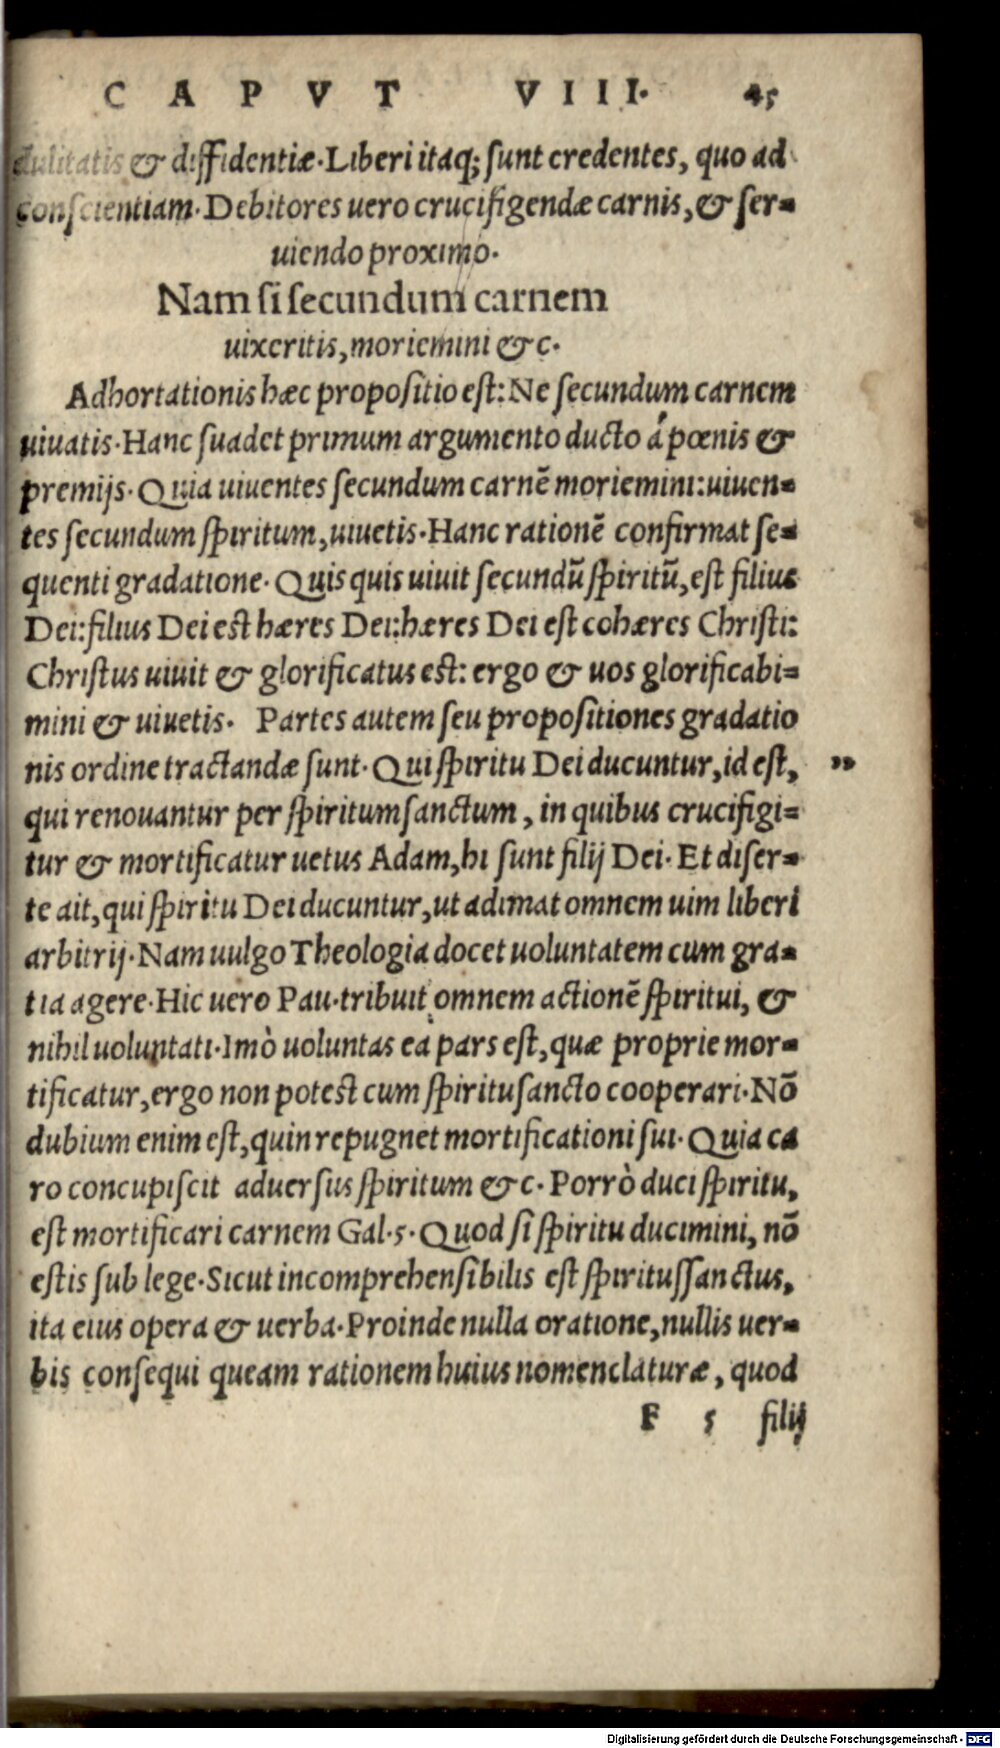 CAPVT VIII. 45
dulitatis & diffidentiæ. Liberi itaq; sunt credentes, quo ad
conscientiam. Debitores uero crucifigendæ carnis, & ser=
uiendo proximo.
Nam si secundum carnem
uixeritis, moriemini &c.
Adhortationis hæc propositio est: Ne secundum carnem
uiuatis. Hanc suadet primum argumento ducto á pœnis &
premijs. Quia uiuentes secundum carnē moriemini: uiuen=
tes secundum spiritum, uiuetis. Hanc rationē confirmat se=
quenti gradatione. Quisquis uiuit secundū spiritū, est filius
Dei: filius Dei est hæres Dei: hæres Dei est cohæres Christi:
Christus uiuit & glorificatus est: ergo & uos glorificabi=
mini & uiuetis. Partes autem seu propositiones gradatio
nis ordine tractandæ sunt. Qui spiritu Dei ducuntur, id est, „
qui renouantur per spiritumsanctum, in quibus crucifigi=
tur & mortificatur uetus Adam, hi sunt filij Dei. Et diser=
te ait, qui spiritu Dei ducuntur, ut adimat omnem uim liberi
arbitrij. Nam uulgo Theologia docet uoluntatem cum gra=
tia agere. Hic uero Pau. tribuit omnem actionē spiritui, &
nihil uoluntati. Imò uoluntas ea pars est, quæ proprie mor=
tificatur, ergo non potest cum spiritusancto cooperari. Nō
dubium enim est, quin repugnet mortificationi sui. Quia ca
ro concupiscit aduersus spiritum &c. Porrò duci spiritu,
est mortificari carnem Gal. 5. Quod si spiritu ducimini, nō
estis sub lege. Sicut incomprehensibilis est spiritussanctus,
ita eius opera & uerba. Proinde nulla oratione, nullis uer=
bis consequi queam rationem huius nomenclaturæ, quod
F 5 filij
Digitalisierung gefördert durch die Deutsche Forschungsgemeinschaft - DFG